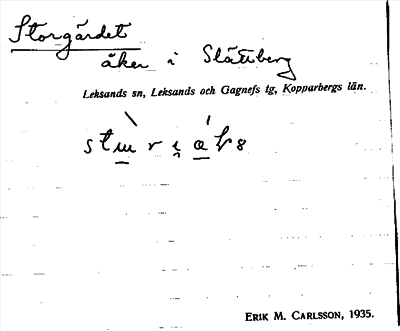 Storgärdet
åker i Slättberg
Leksands sn, Leksands och Gagnefs tg, Kopparbergs län.
ERIK M. CARLSSON, 1935.